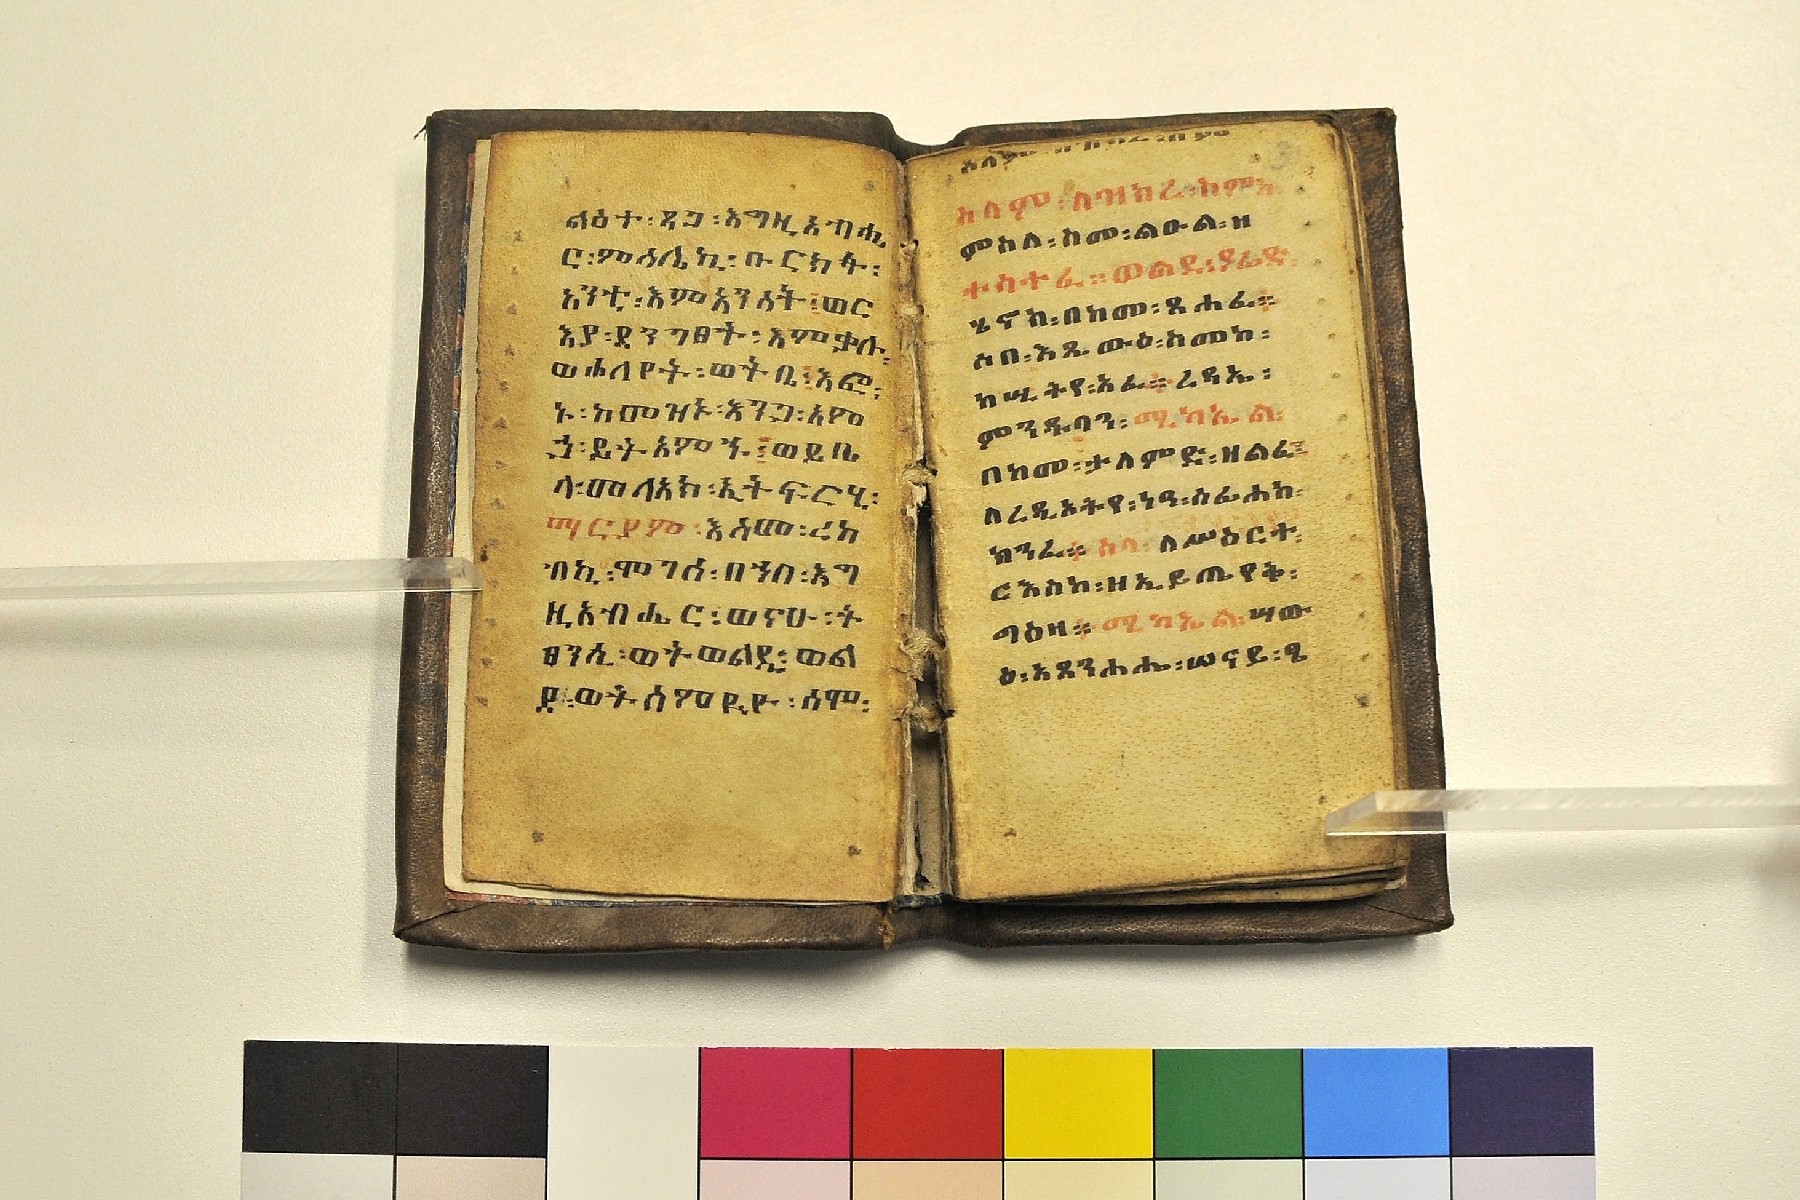 ልዕተ፡ ጸጋ፡ እግዚአብሔ
ር፡ ምስሌኪ፡ ቡርክት፡
አንቲ፡ እምአንስት፤ ወር
እያ፡ ደንገፀት፡ እምቃሉ፡
ወሐለየት፡ ወትቤ፤ እፎ፡
ኑ፡ ከመዝኑ፡ እንጋ፡ አምኃ፡
ኃ፡ ይትአምኁ፤ ወይቤ
ላ፡ መላእክ፡ ኢትፍርሂ፡
ማርያም፡ እስመ፡ ረከ
ብኪ፡ ሞገሰ፡ በኀበ፡ እግ
ዚአብሔር፡ ወናሁ፡ ት
ፀንሲ፡ ወትወልዲ፡ ወል
ደ፡ ወትሰምዪዮ፡ ስሞ፡
ሰላም፡ ለዝክረ፡ ስምከ፡
ምስለ፡ ስመ፡ ልዑል፡ ዘ
ተሳተፈ። ወልደ፡ ያሬድ፡
ሄኖክ፡ በከመ፡ ጸሐፈ፡
ሶበ፡ እጼውዕ፡ ስመከ፡
ከሢትየ፡ አፈ። ረዳኤ፡
ምንዱባን፡ ሚካኤል፡
በከመ፡ ታለምድ፡ ዘልፈ፤
ለረዲኦትየ፡ ነዓ፡ ሰፊሐከ፡
ክንፈ። ሰላ፡ ለሥዕርተ፡
ርእስከ፡ ዘኢይጤየቅ፡
ግዕዘ። ሚካኤል፡ ሣው
ዕ፡ አጸንሐሔ፡ ሠናይ፡ ዒ